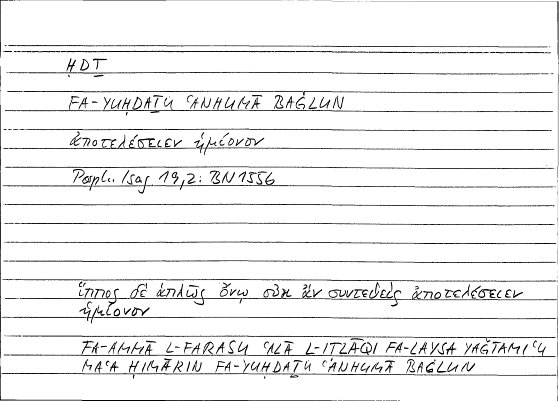 ḤDṮ
FA-YUḤDAṮU ʿANHUMĀ BAĠLUN
ἀποτελέσειεν ἡμίονον
Porph. Isag. 19,2: BN 1556
ἵππος δὲ ἁπλῶς ὄνῳ οὐκ ἂν συντεθεὶς ἀποτελέσειεν
ἡμίονον
FA-AMMĀ L-FARASU ʿALĀ L-ITLĀQI FA-LAYSA YAǦTAMIʿU
MAʿA ḤIMĀRIN FA-YUḤDAṮU ʿANHUMĀ BAĠLUN